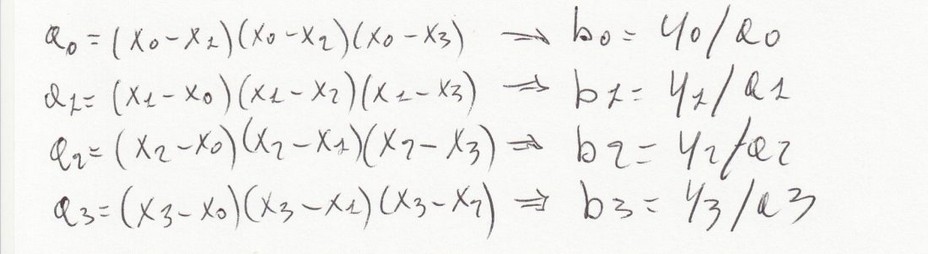 a₀ = (x₀ - x₁)(x₀ - x₂)(x₀ - x₃) ⇒ b₀ = y₀/a₀
a₁ = (x₁ - x₀)(x₁ - x₂)(x₁ - x₃) ⇒ b₁ = y₁/a₁
a₂ = (x₂ - x₀)(x₂ - x₁)(x₂ - x₃) ⇒ b₂ = y₂/a₂
a₃ = (x₃ - x₀)(x₃ - x₁)(x₃ - x₂) ⇒ b₃ = y₃/a₃